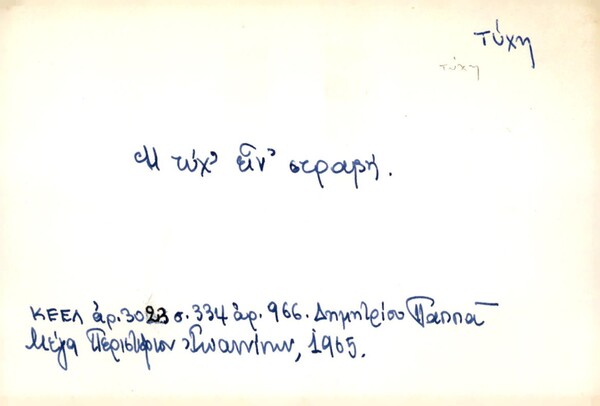 τύχη
τύχη
Η τύχ' εἶν' στραβή.
ΚΕΕΛ ἀρ. 3023 σ. 334 ἀρ. 966. Δημητρίου Παππᾶ
Μέγα Περιστέριον Ἰωαννίνων, 1965.